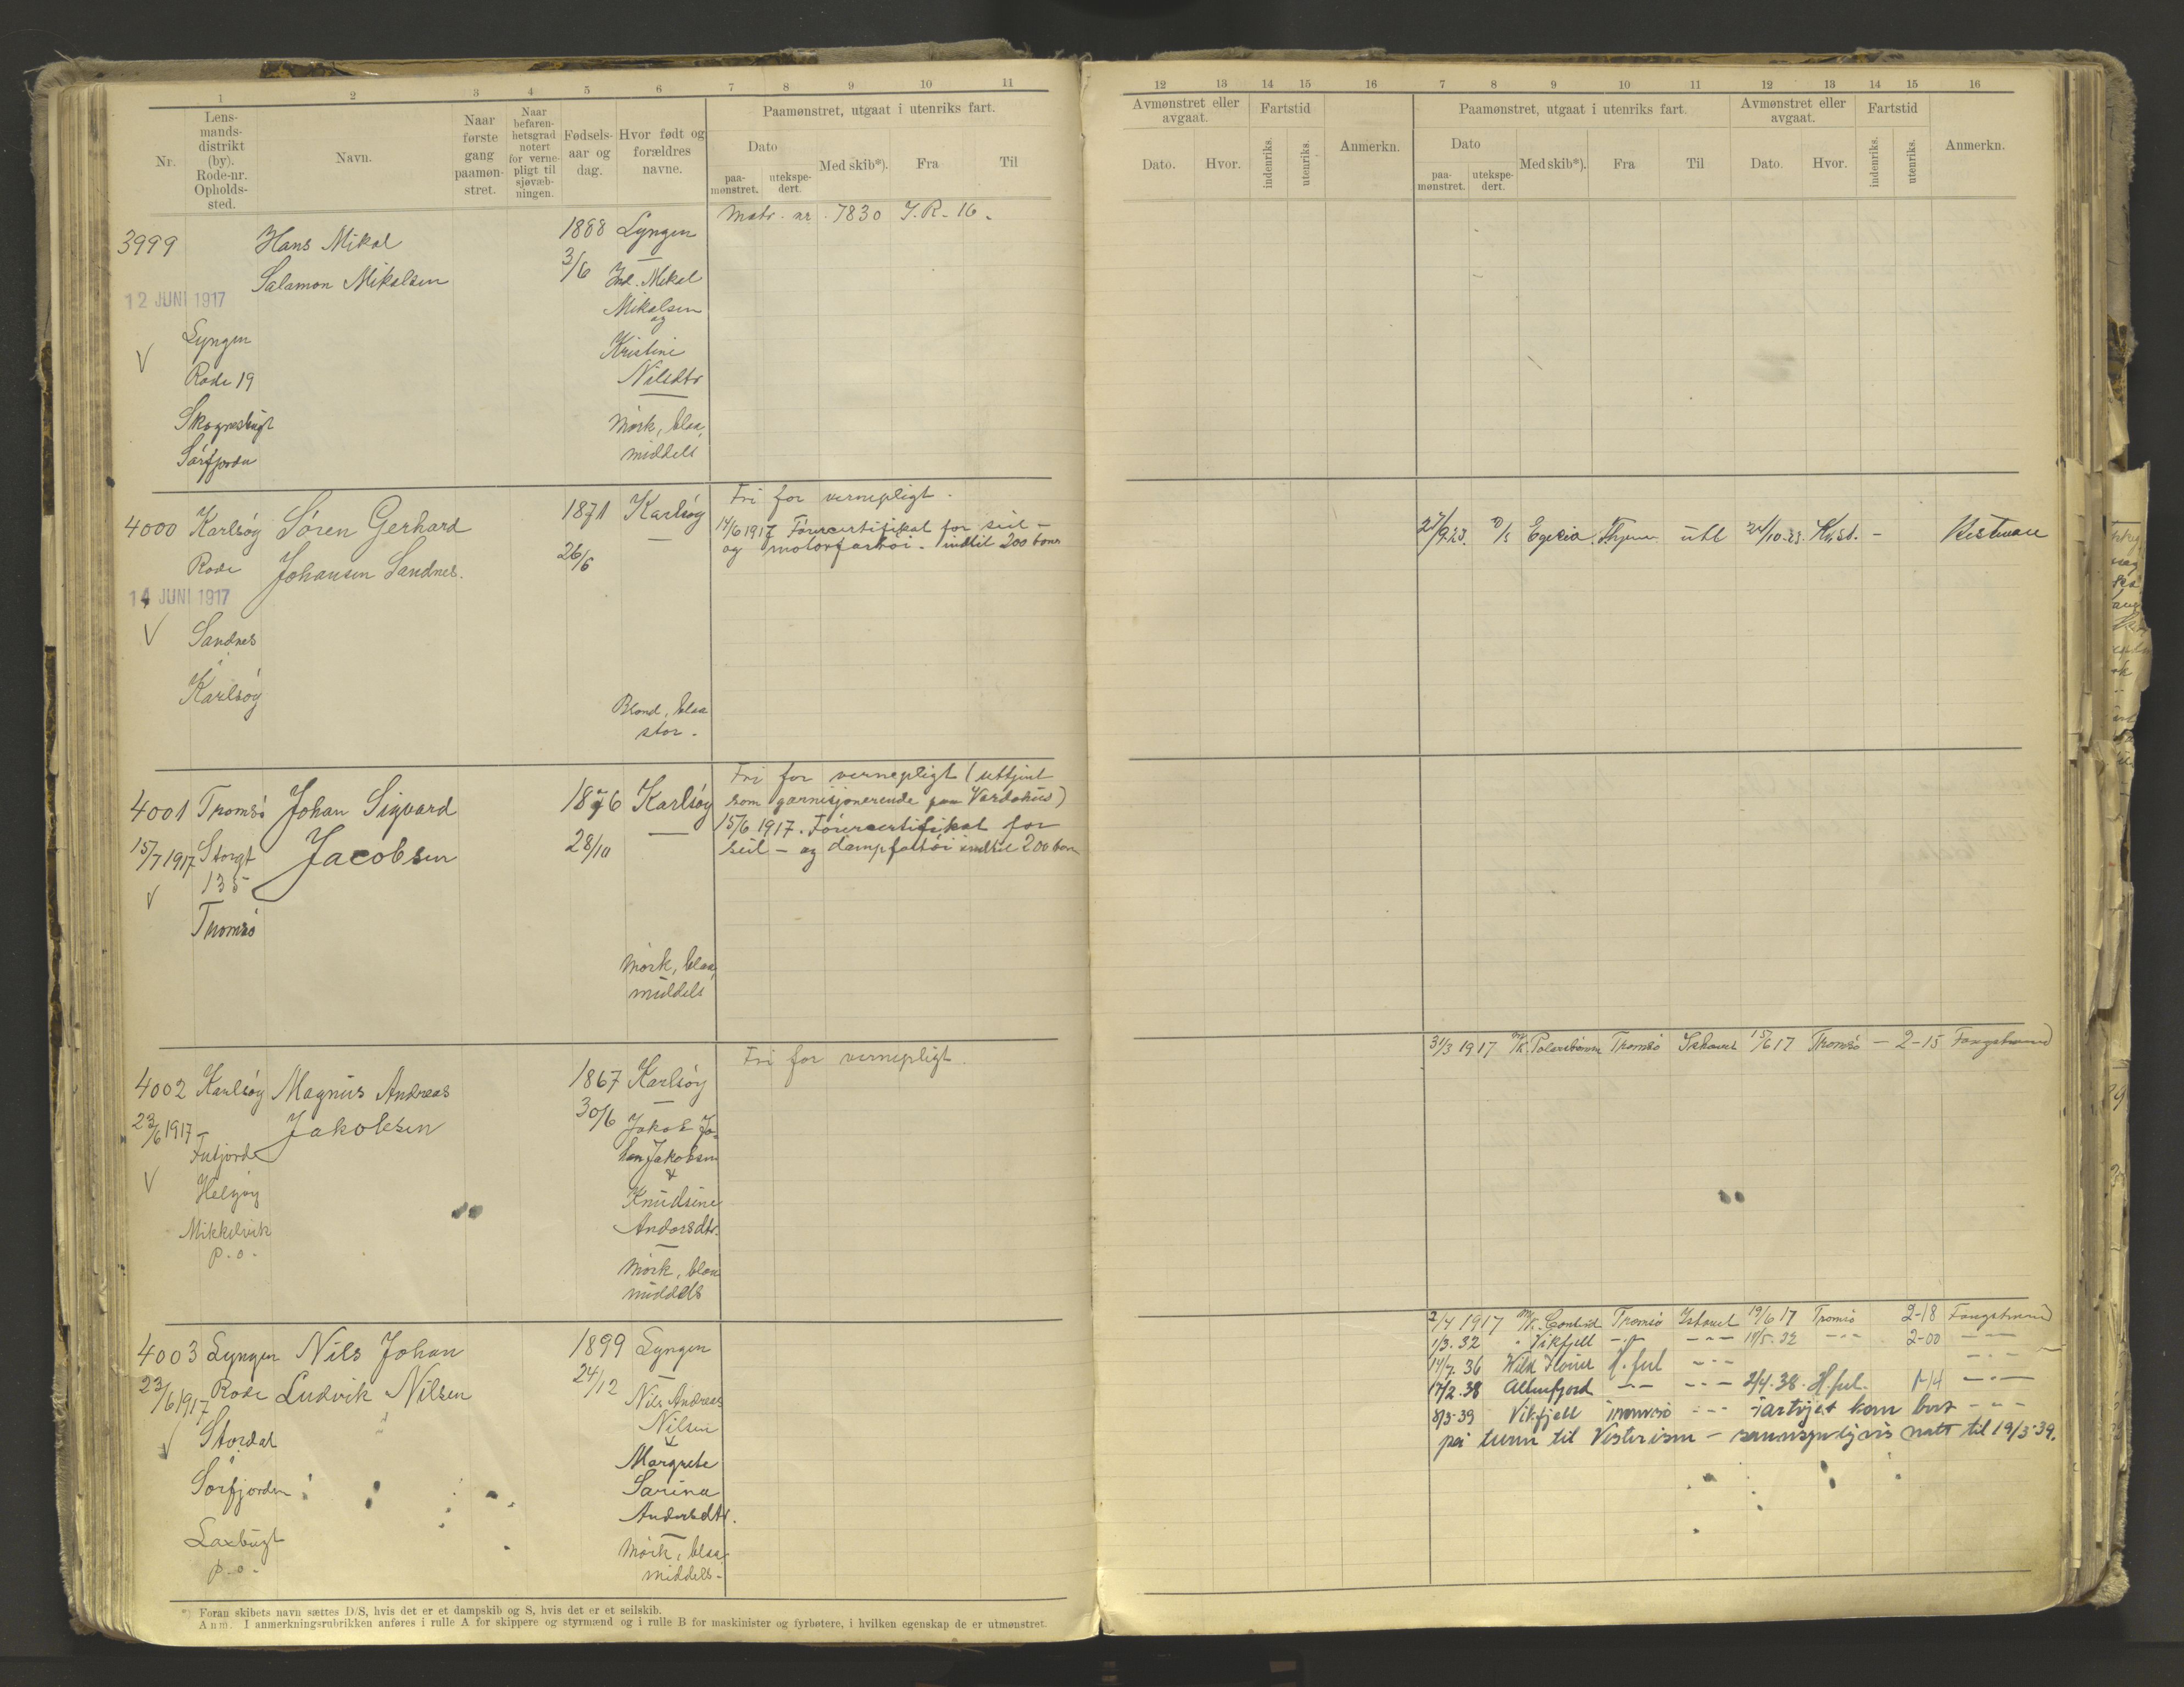 1 2 3 4 5 6 7 8 9 10 11
Nr.
Lens-
mands-
distrikt
(by).
Rode-nr.
Opholds-
sted.
Navn.
Naar
første
gang
paamøn-
stret.
Naar
befaren-
hetsgrad
notert
for verne-
pligt til
sjøvæb-
ningen.
Fødsels-
aar og
dag.
Hvor født og
forældres
navne.
Paamønstret, utgaat i utenriks fart.
Dato
paa-
mønstret.
utekspe-
dert.
Med skib*).
Fra
Til
3999
12 JUNI 1917
V
Lyngen
Rode 19
Skognesbugt
Sørfjorden
Hans Mikal
Salamon Mikalsen
1888
3/6
Lyngen
Mikal
Mikalsen
og
Kristine
Nilsdtr
Mørk, blaa,
middels
Matr. nr. 7830 I.R.-16.
4000
14 JUNI 1917
V
Karlsøy
Rode
Sandnes
Karlsøy
Søren Gerhard
Johansen Sandnes.
1871
26/6
Karlsøy
Blond, blaa
stor.
Fri for vernepligt.
14/6 1917 Førercertifikat for seil-
og motorfartøi. indtil 200 tons
4001
15/7 1917
V
Tromsø
Storgt
135
Tromsø
Johan Sigvard
Jacobsen
1876
28/10
Karlsøy
Mørk, blaa,
middels
Fri for vernepligt (uttjent
som garnisjonerende paa Vardøhus)
15/6 1917. Førercertifikat for
seil- og dampfartøi indtil 200 tons
4002
23/6 1917
V
Karlsøy
Helgøy
Mikkelvik
p.o.
Magnus Andreas
Jakobsen
1867
30/6
Karlsøy
Jakob Jo-
han Jakobsen
&
Knudsine
Andorsdtr.
Mørk, blaa
middels
Fri for vernepligt.
4003
23/6 1917
V
Lyngen
Rode
Stordal
Sørfjorden
Laxbugt
p.o.
Nils Johan
Ludvik Nilsen
1899
24/12
Lyngen
Nils Andreas
Nilsen
&
Margrete
Sarina
Andorsdtr.
Mørk, blaa
middels-
*) Foran skibets navn sættes D/S, hvis det er et dampskib og S, hvis det er et seilskib.
Anm. I anmerkningsrubrikken anføres i rulle A for skippere og styrmænd og i rulle B for maskinister og fyrbøtere, i hvilken egenskap de er utmønstret.
12 13 14 15 16 7 8 9 10 11 12 13 14 15 16
Avmønstret eller
avgaat.
Dato.
Hvor.
Fartstid
indenriks.
utenriks.
Anmerkn.
Paamønstret, utgaat i utenriks fart.
Dato
paa-
mønstret.
utekspe-
dert.
Med skib*).
Fra
Til
Avmønstret eller
avgaat.
Dato.
Hvor.
Fartstid
indenriks.
utenriks.
Anmerkn.
27/9.23. D/S utl 24/10-23. -
31/3 1917 M/K Polarbjørn Tromsø Ishavet 15/6 17 Tromsø - 2-15 Fangstmand
2/4 1917 M/K Tromsø Ishavet 19/6 17 Tromsø 2-18 Fangstmand
1/3.32 " Vikfjell -"- -"- -"- 2-00 -"-
14/7.36 H.fest -"- -"-
17/2.38 Altenfjord -"- -"- 2/4.38. H.fest. 1-14 -"-
8/3-39 Vikfjell Tromsø -"- Fartøjet kom bort -"-
på turen til Vesterisen - sannsynligvis natt til 19/3-39.